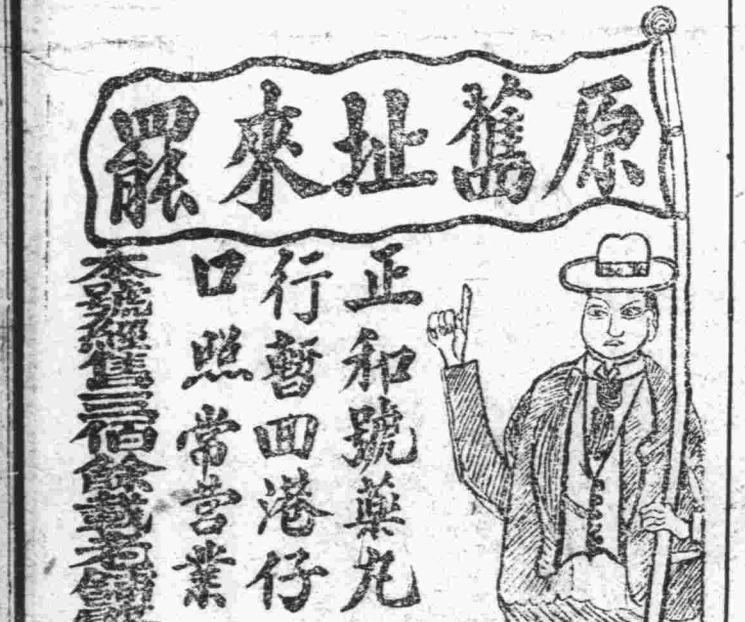 原舊址來罷
正和號藥丸
行暫回港仔
口照常营業
本號經售三佰餘載老舖